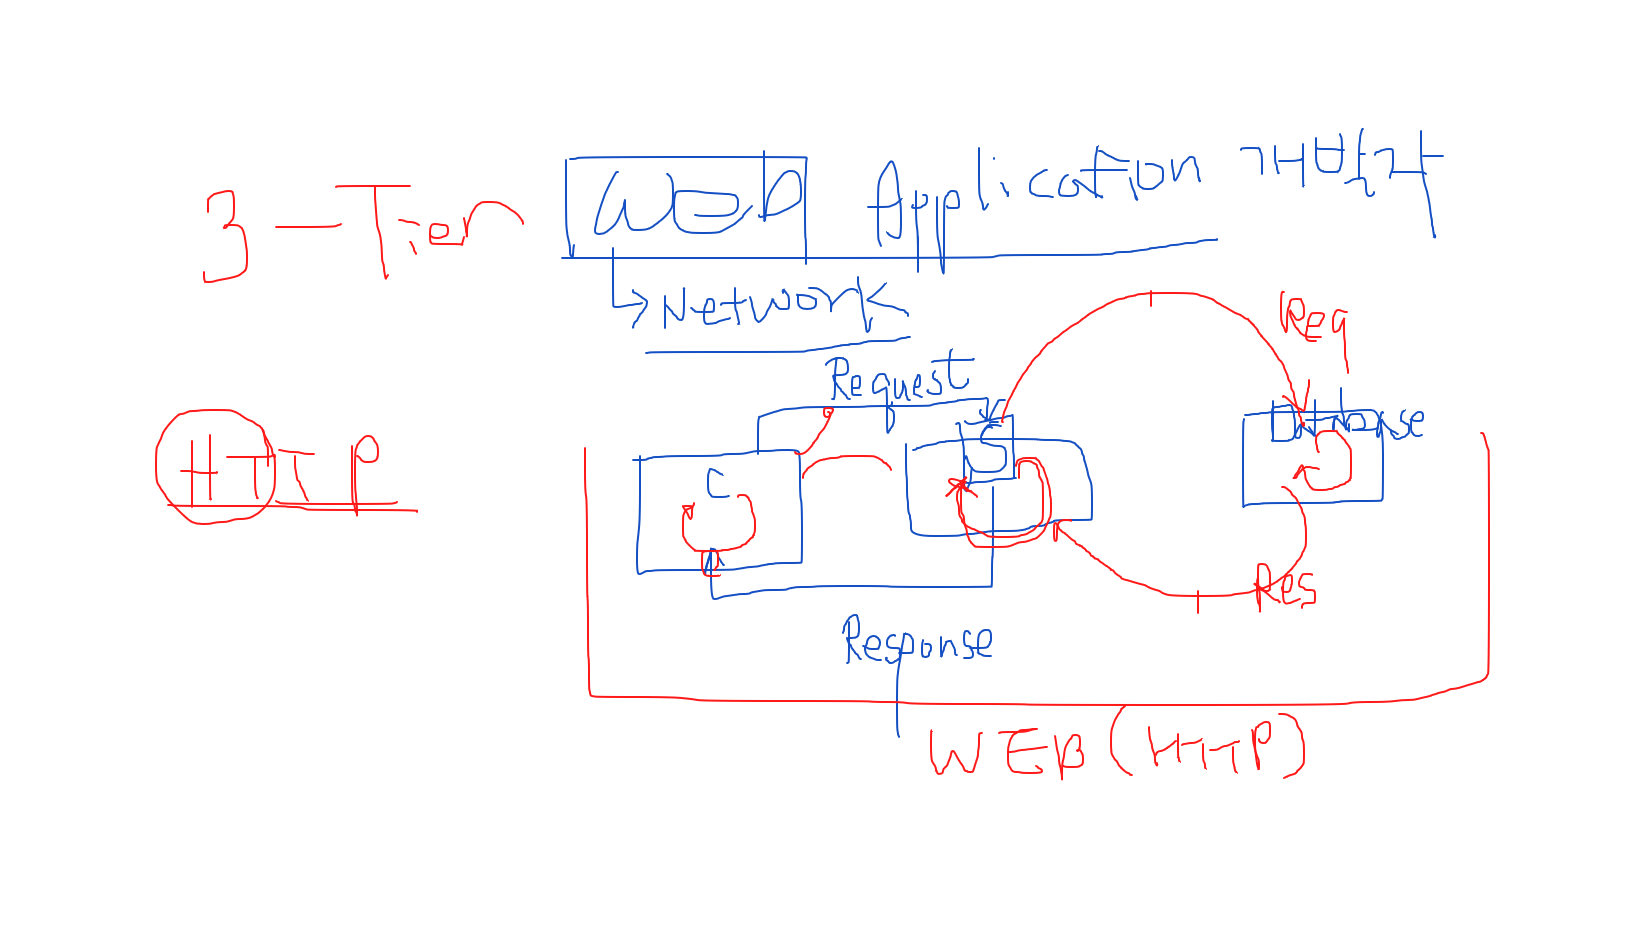 3-Tier Web Application 개발자
→Network
HTTP
Request
Req
C
S
Database
Res
Response
WEB (HTTP)